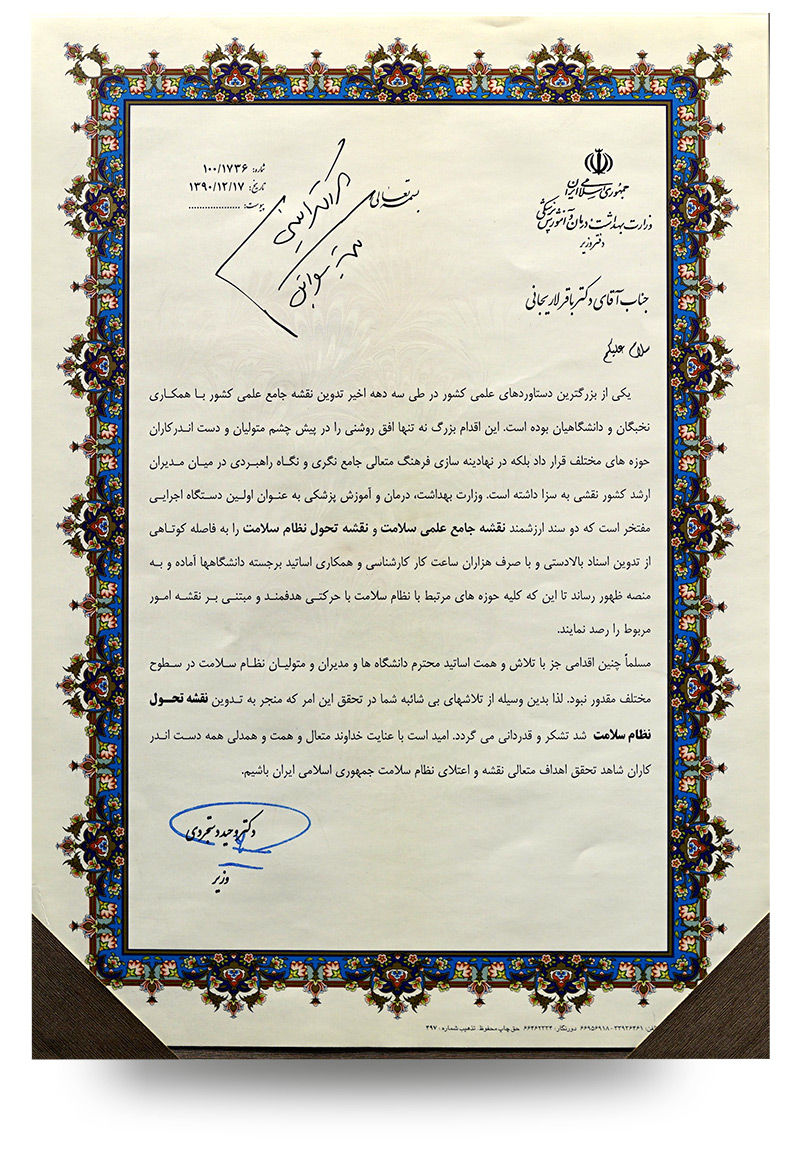 بسمه تعالی
جمهوری اسلامی ایران
وزارت بهداشت، درمان و آموزش پزشکی
دفتر وزیر
شماره: ۱۰۰/۱۷۳۶
تاریخ: ۱۳۹۰/۱۲/۱۷
پیوست: ....................
جناب آقای دکتر باقر لاریجانی
سلام علیکم
یکی از بزرگترین دستاوردهای علمی کشور در طی سه دهه اخیر تدوین نقشه جامع علمی کشور با همکاری
نخبگان و دانشگاهیان بوده است. این اقدام بزرگ نه تنها افق روشنی را در پیش چشم متولیان و دست اندرکاران
حوزه های مختلف قرار داد بلکه در نهادینه سازی فرهنگ متعالی جامع نگری و نگاه راهبردی در میان مدیران
ارشد کشور نقشی به سزا داشته است. وزارت بهداشت، درمان و آموزش پزشکی به عنوان اولین دستگاه اجرایی
مفتخر است که دو سند ارزشمند نقشه جامع علمی سلامت و نقشه تحول نظام سلامت را به فاصله کوتاهی
از تدوین اسناد بالادستی و با صرف هزاران ساعت کار کارشناسی و همکاری اساتید برجسته دانشگاهها آماده و به
منصه ظهور رساند تا این که کلیه حوزه های مرتبط با نظام سلامت با حرکتی هدفمند و مبتنی بر نقشه امور
مربوط را رصد نمایند.
مسلماً چنین اقدامی جز با تلاش و همت اساتید محترم دانشگاه ها و مدیران و متولیان نظام سلامت در سطوح
مختلف مقدور نبود. لذا بدین وسیله از تلاشهای بی شائبه شما در تحقق این امر که منجر به تدوین نقشه تحول
نظام سلامت شد تشکر و قدردانی می گردد. امید است با عنایت خداوند متعال و همت و همدلی همه دست اندر
کاران شاهد تحقق اهداف متعالی نقشه و اعتلای نظام سلامت جمهوری اسلامی ایران باشیم.
دکتر وحید دستجردی
وزیر
تلفن: ۳۳۹۲۶۴۶۱ - ۶۶۹۵۶۹۱۸ دورنگار: ۶۶۴۶۲۲۲۴ حق چاپ محفوظ. تذهیب شماره: ۴۹۷